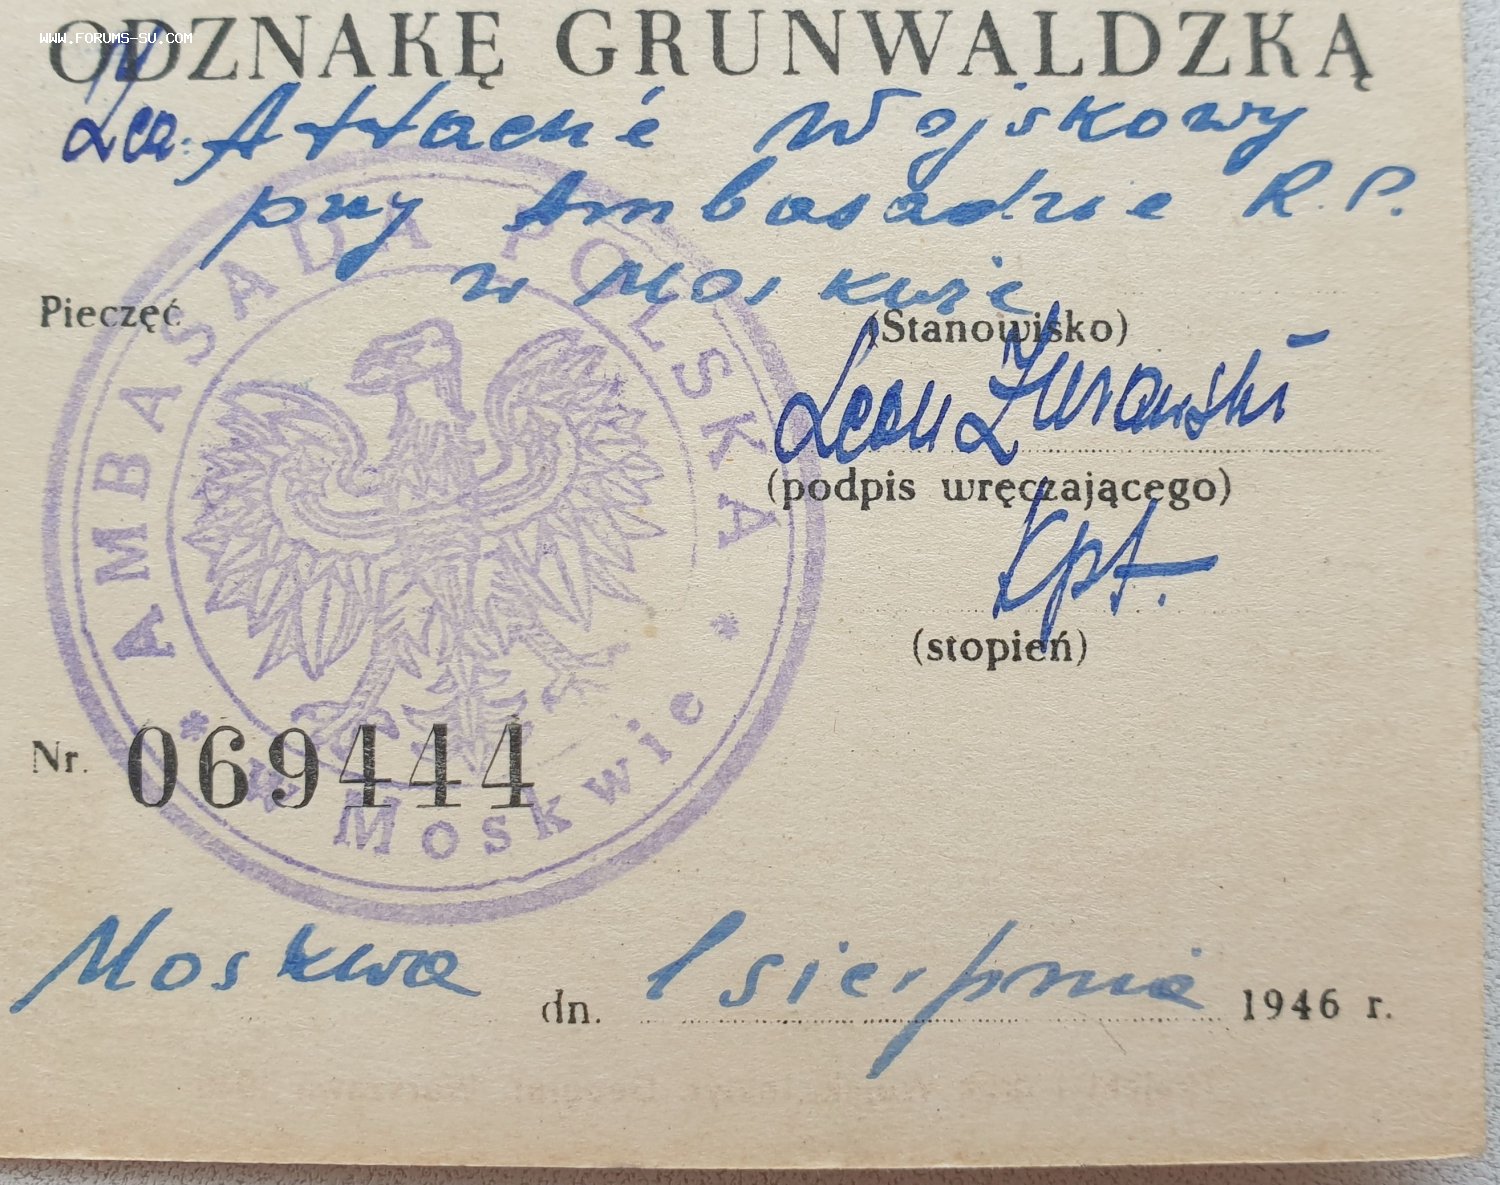 www.forums-su.com
ODZNAKĘ GRUNWALDZKĄ
Attaché Wojskowy
przy Ambasadzie R.P.
w Moskwie
Pieczęć
(Stanowisko)
Leon Żurawski
(podpis wręczającego)
Kpt.
(stopień)
AMBASADA POLSKA
* w Moskwie *
Nr. 069444
Moskwa dn. 1 sierpnia 1946 r.